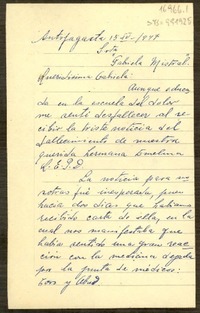 16966.1
Antofagasta 13
Srta.
Gabriela Mistral.
Queridísima Gabriela:
Aunque educa
da en la escuela del dolor
me sentí desfallecer al re
cibir la triste noticia del
fallecimiento de nuestra
querida hermana Emelina
Q.E.P.D.
La noticia para no
sotras fué inesperada, pues
hacía dos días que habíamos
recibido carta de ella, en la
cual nos manifestaba que
había sentido una gran reac
ción con la medicina dejada
por la junta de médicos:
y